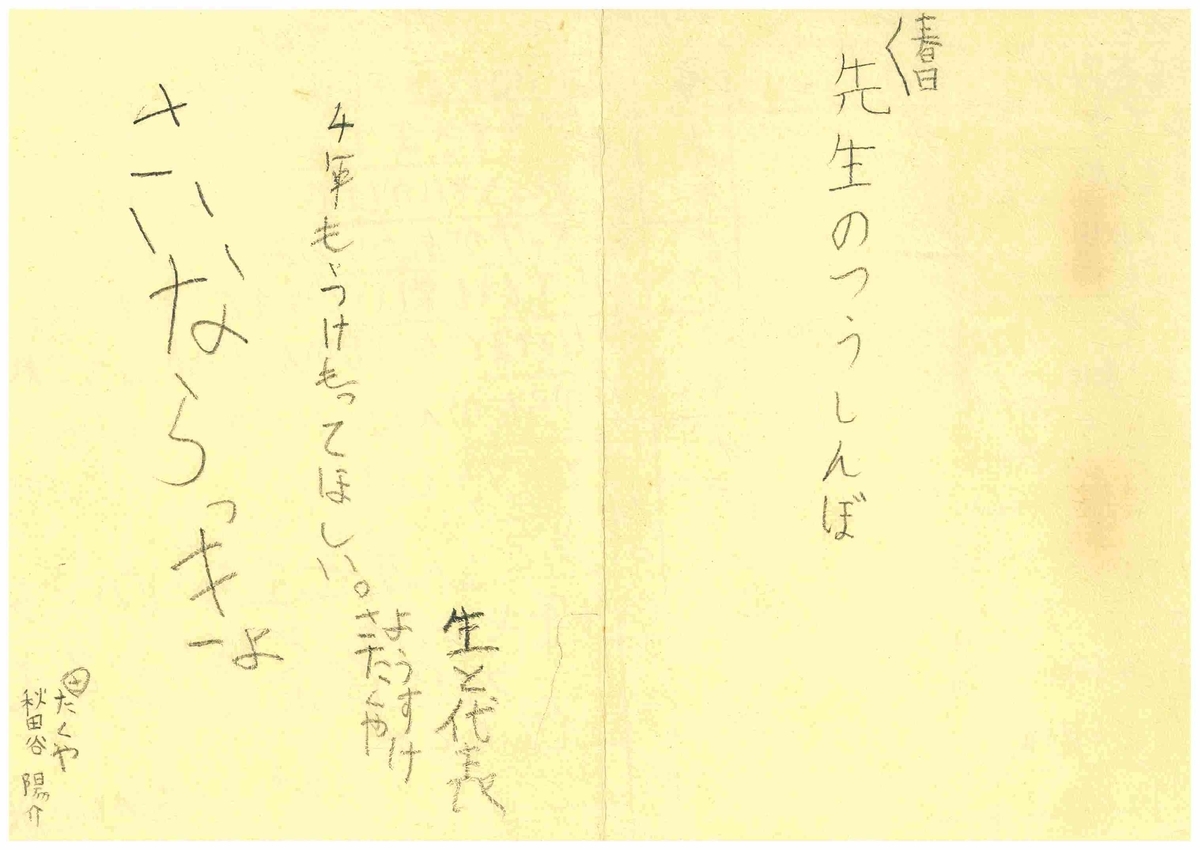 春日
先生のつうしんぼ
生と代表
ようすけ
たくや
4年もうけもってほしい。
さいならっきーよ
田たくや
秋田谷 陽介